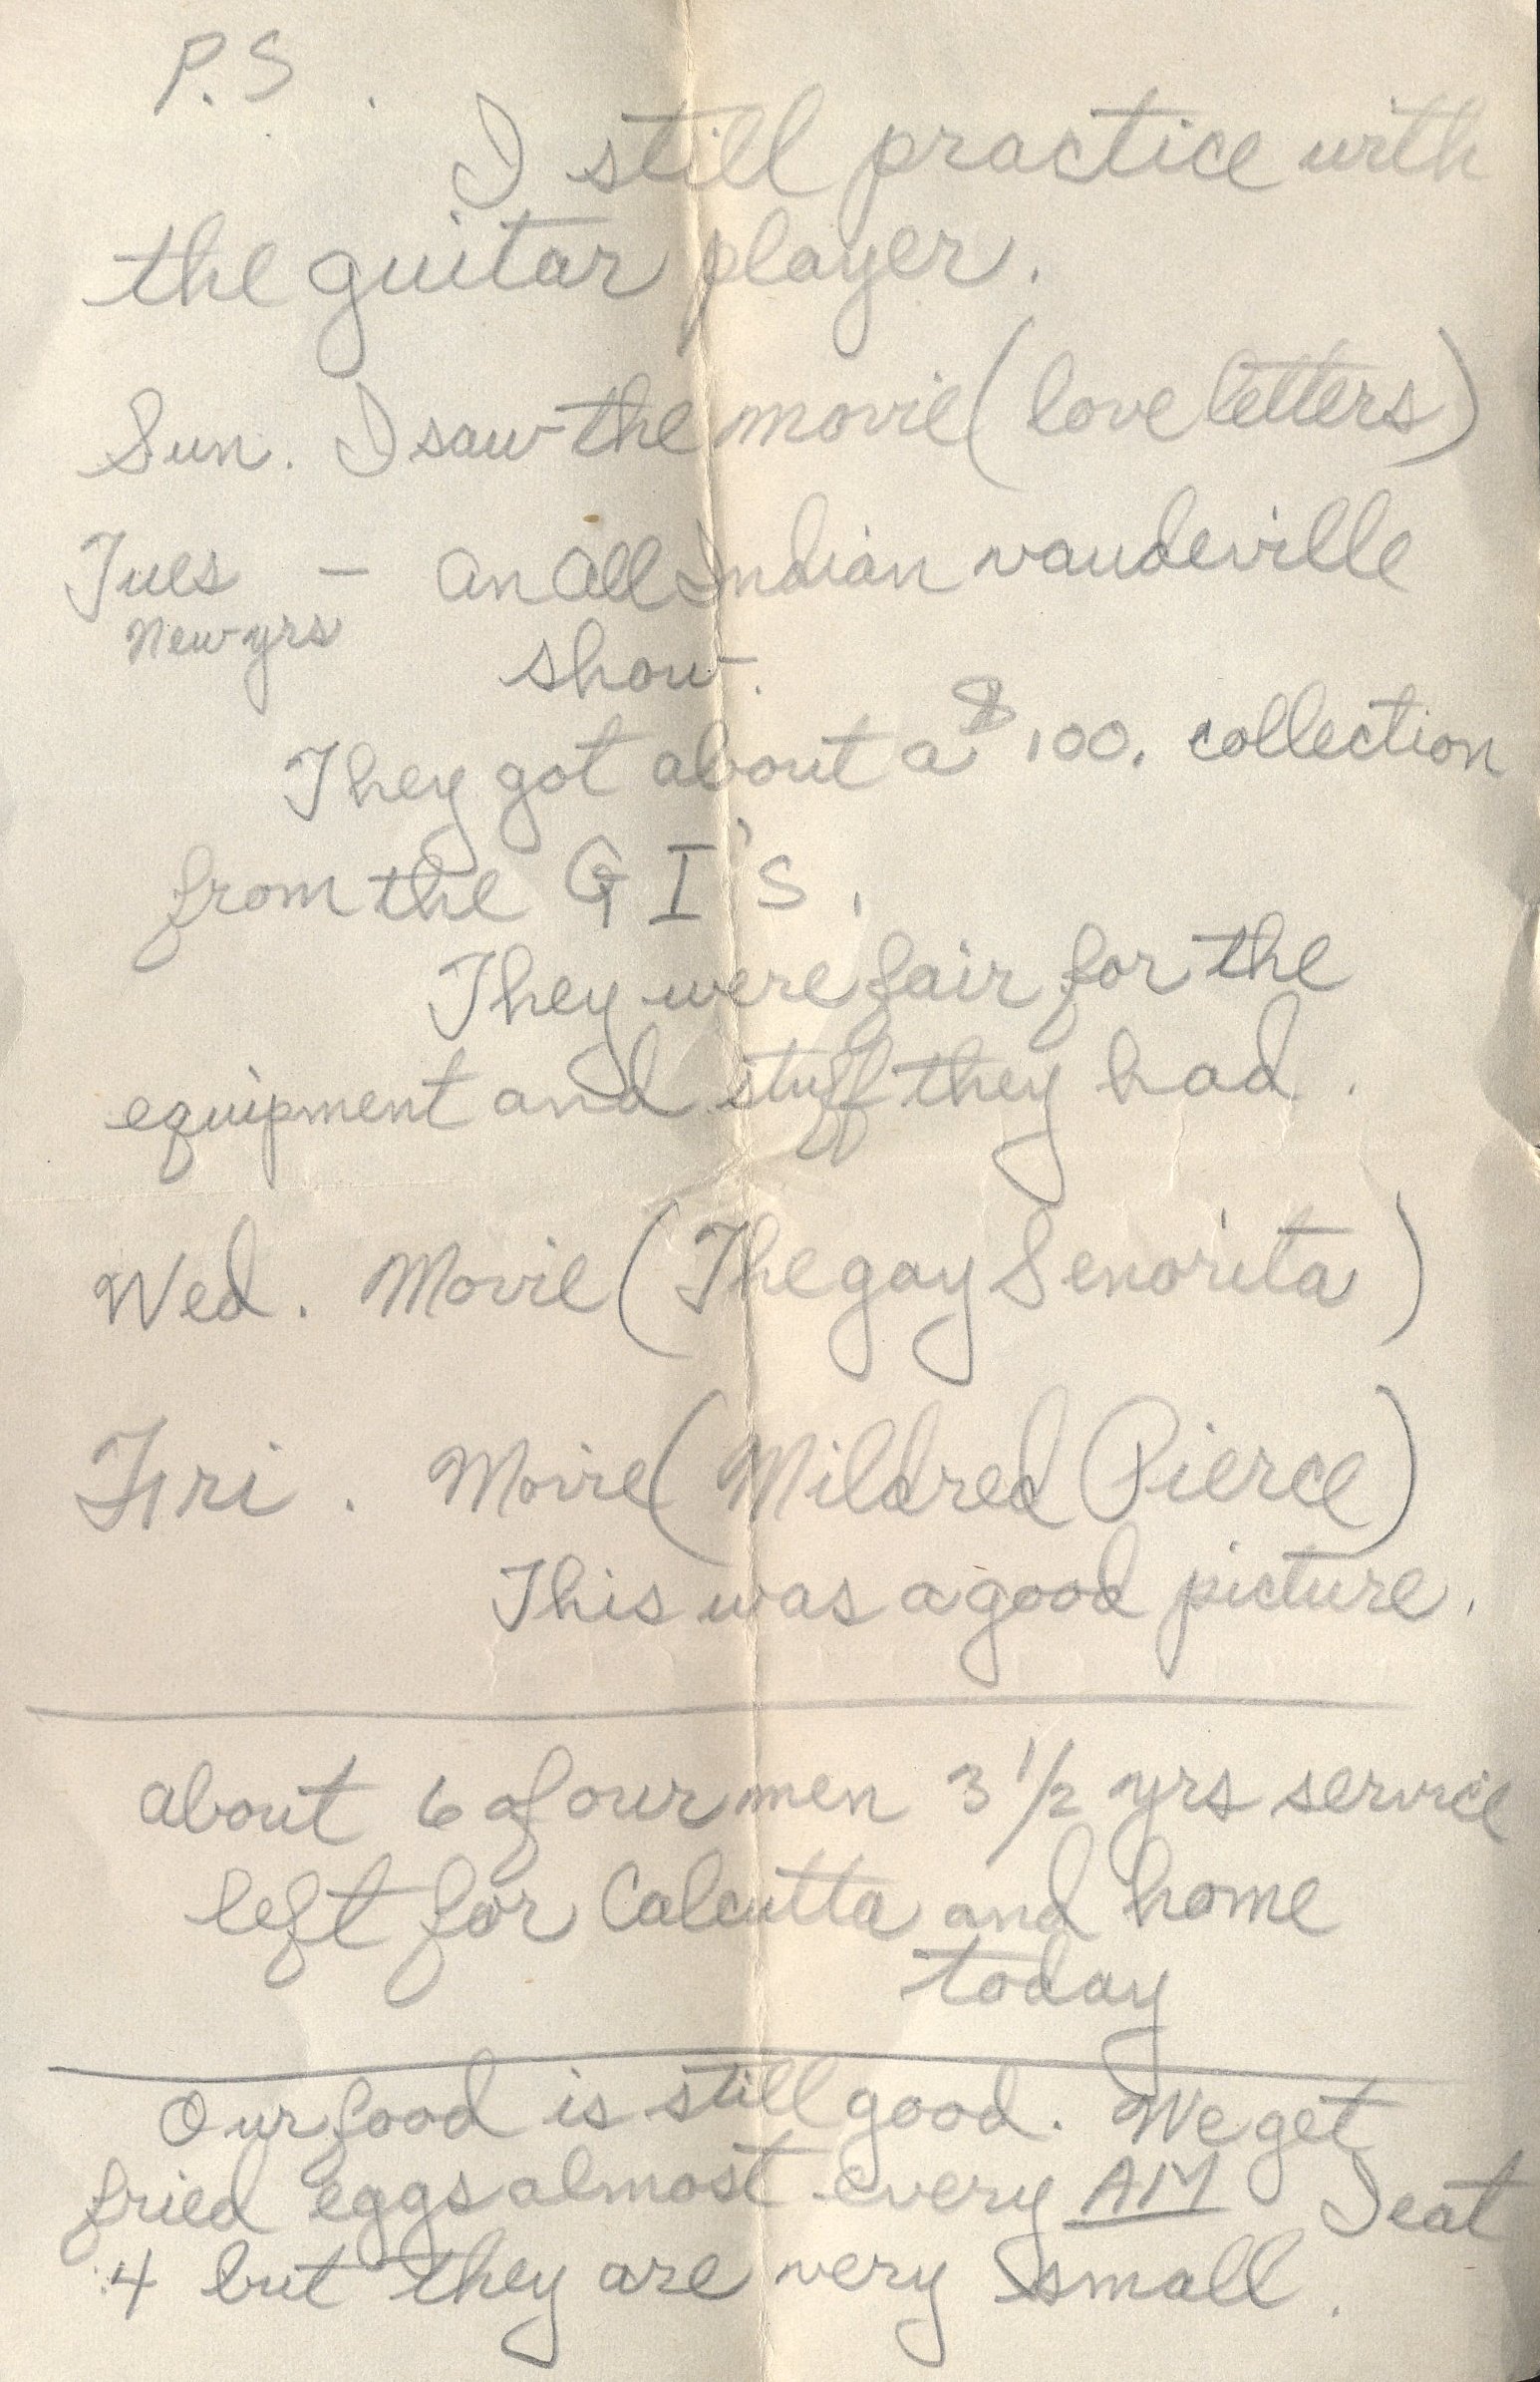 P.S.
I still practice with
the guitar player.
Sun. I saw the movie (love letters)
Tues – an all Indian vaudeville
New yrs
show.
They got about a $100. collection
from the G I's.
They were fair for the
equipment and stuff they had.
Wed. Movie (The gay Senorita)
Fri. Movie (Mildred Pierce)
This was a good picture.
about 6 of our men 3 1/2 yrs service
left for Calcutta and home
today
Our food is still good. We get
fried eggs almost every AM I eat
4 but they are very small.